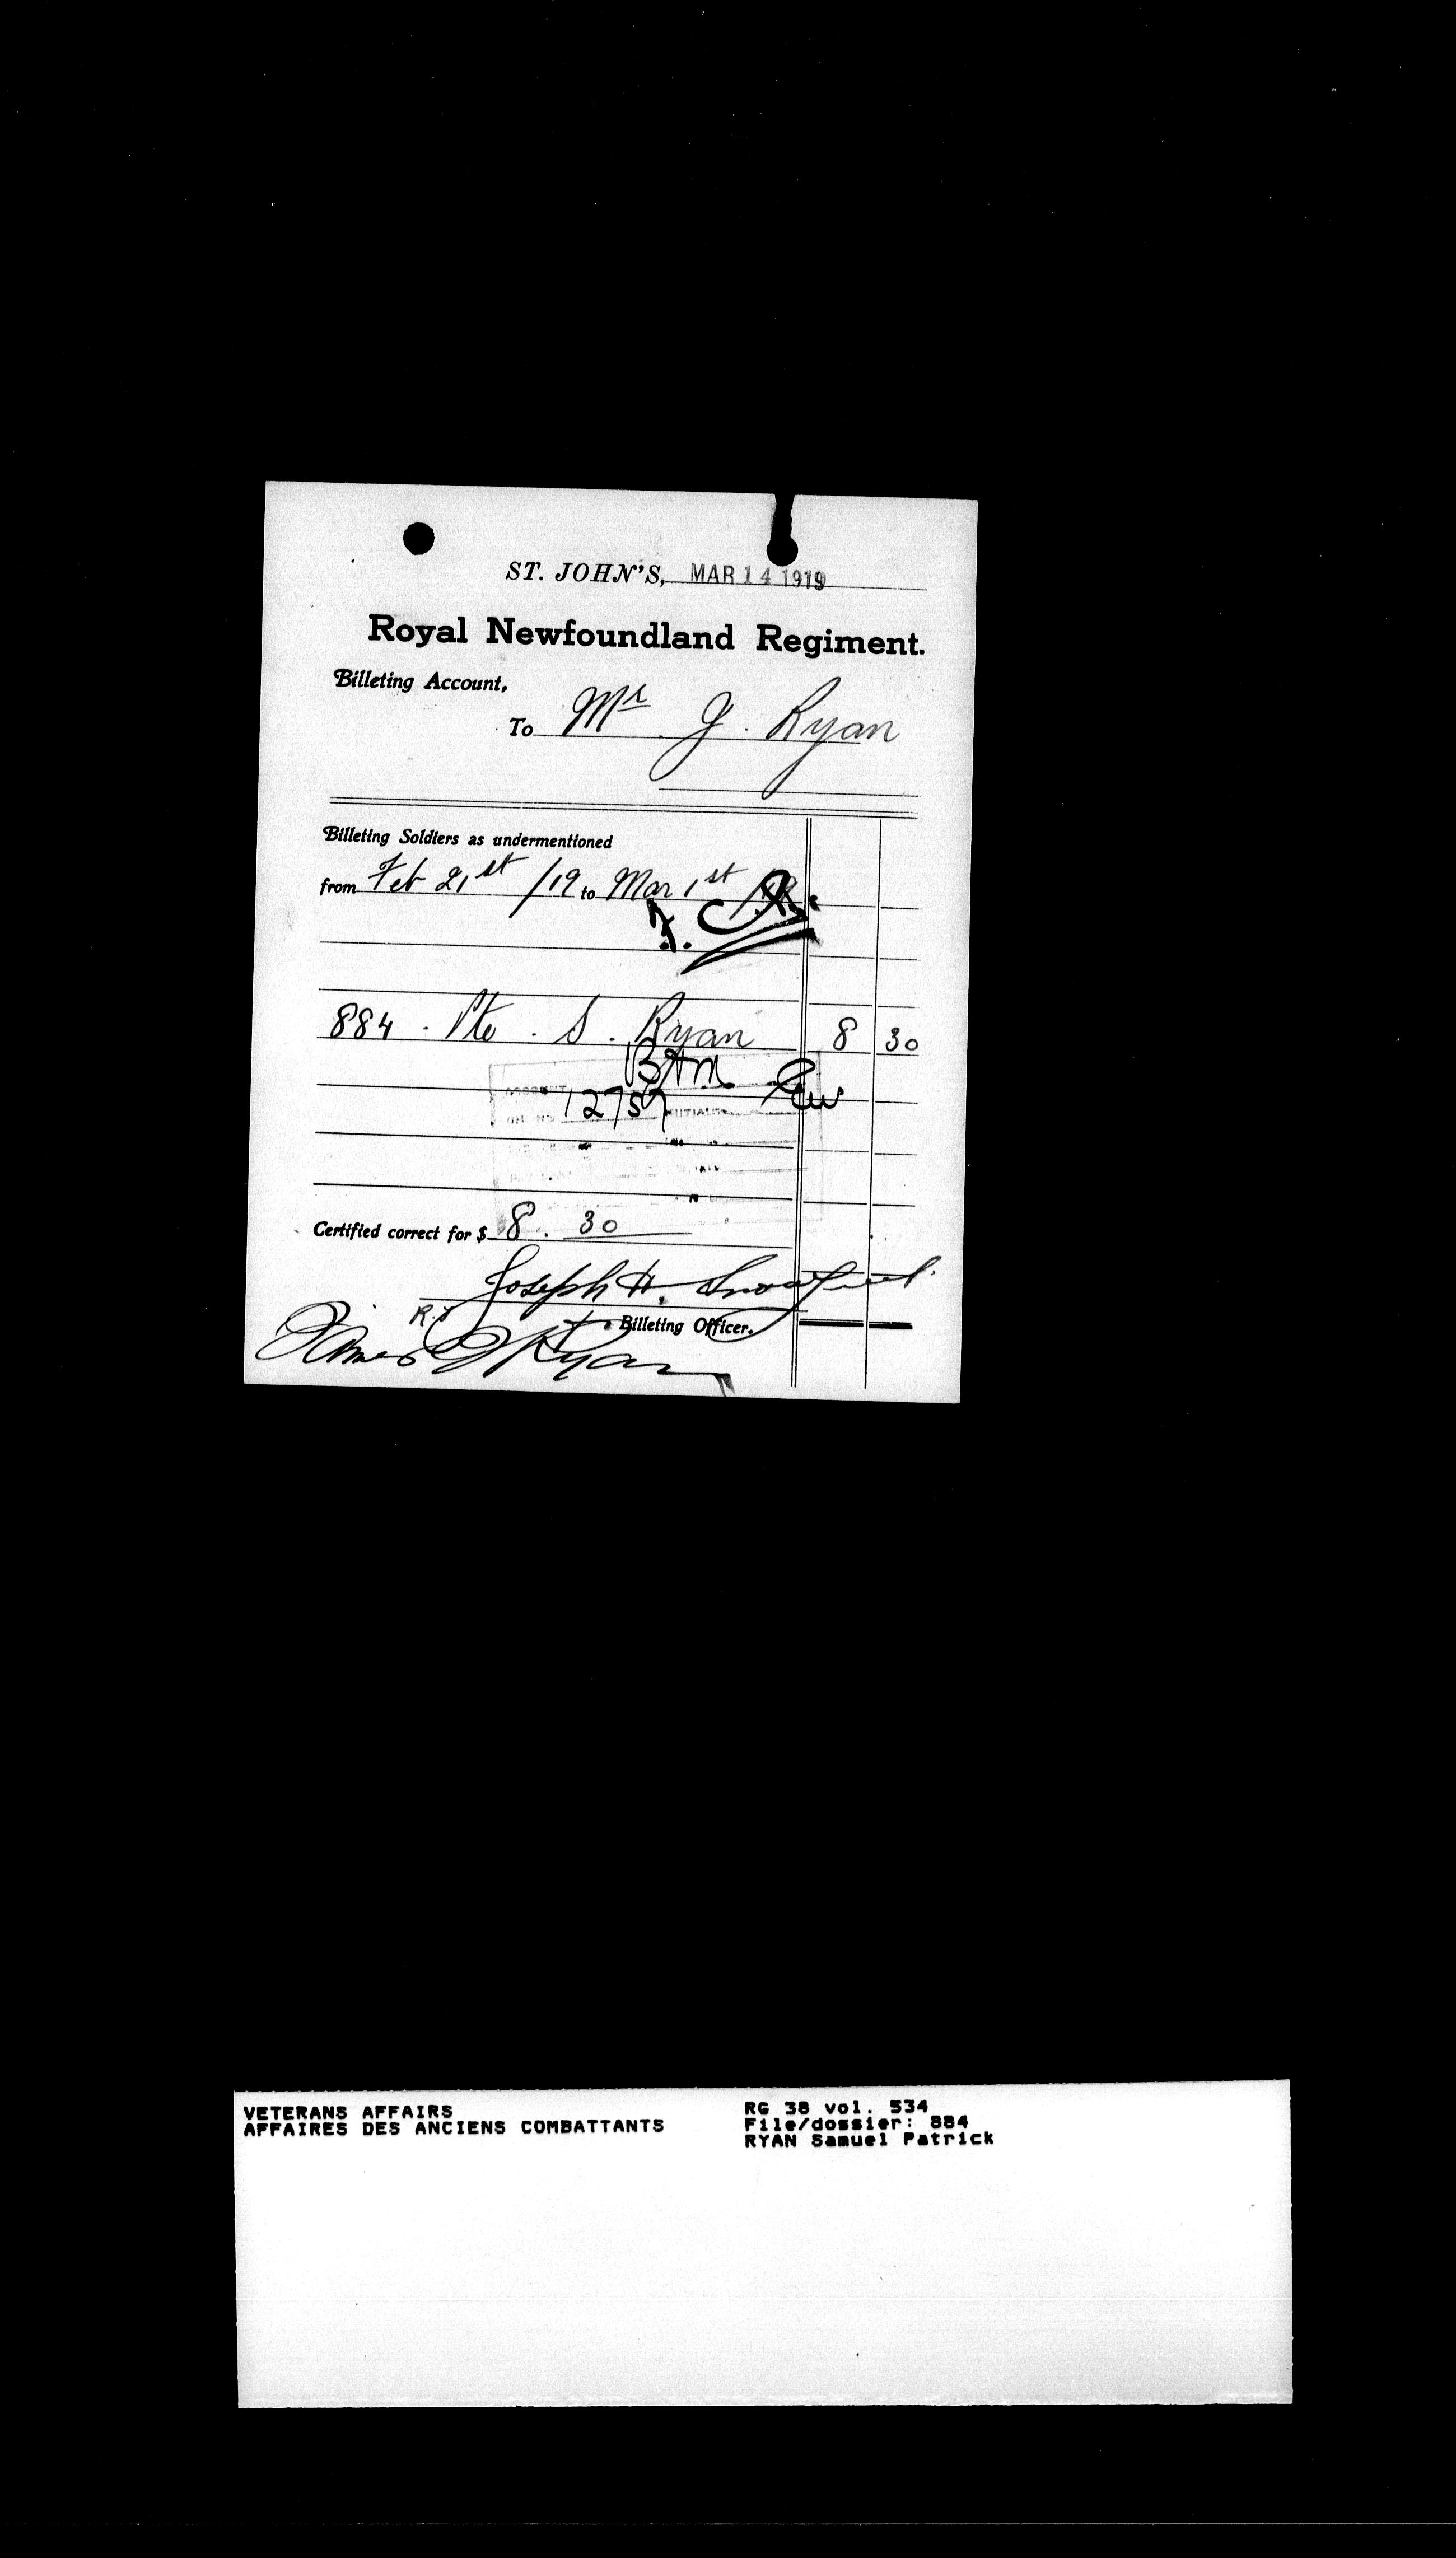 ST. JOHN'S, MAR 14 1919
Royal Newfoundland Regiment.
Billeting Account,
To Mr J. Ryan
Billeting Soldiers as undermentioned
from Feb 21st /19 to Mar 1st /19
884 . Pte . S . Ryan 8 30
12757
Certified correct for $ 8 . 30
Joseph H.
Billeting Officer.
James J Ryan
VETERANS AFFAIRS RG 38 vol. 534
AFFAIRES DES ANCIENS COMBATTANTS File/dossier: 884
RYAN Samuel Patrick